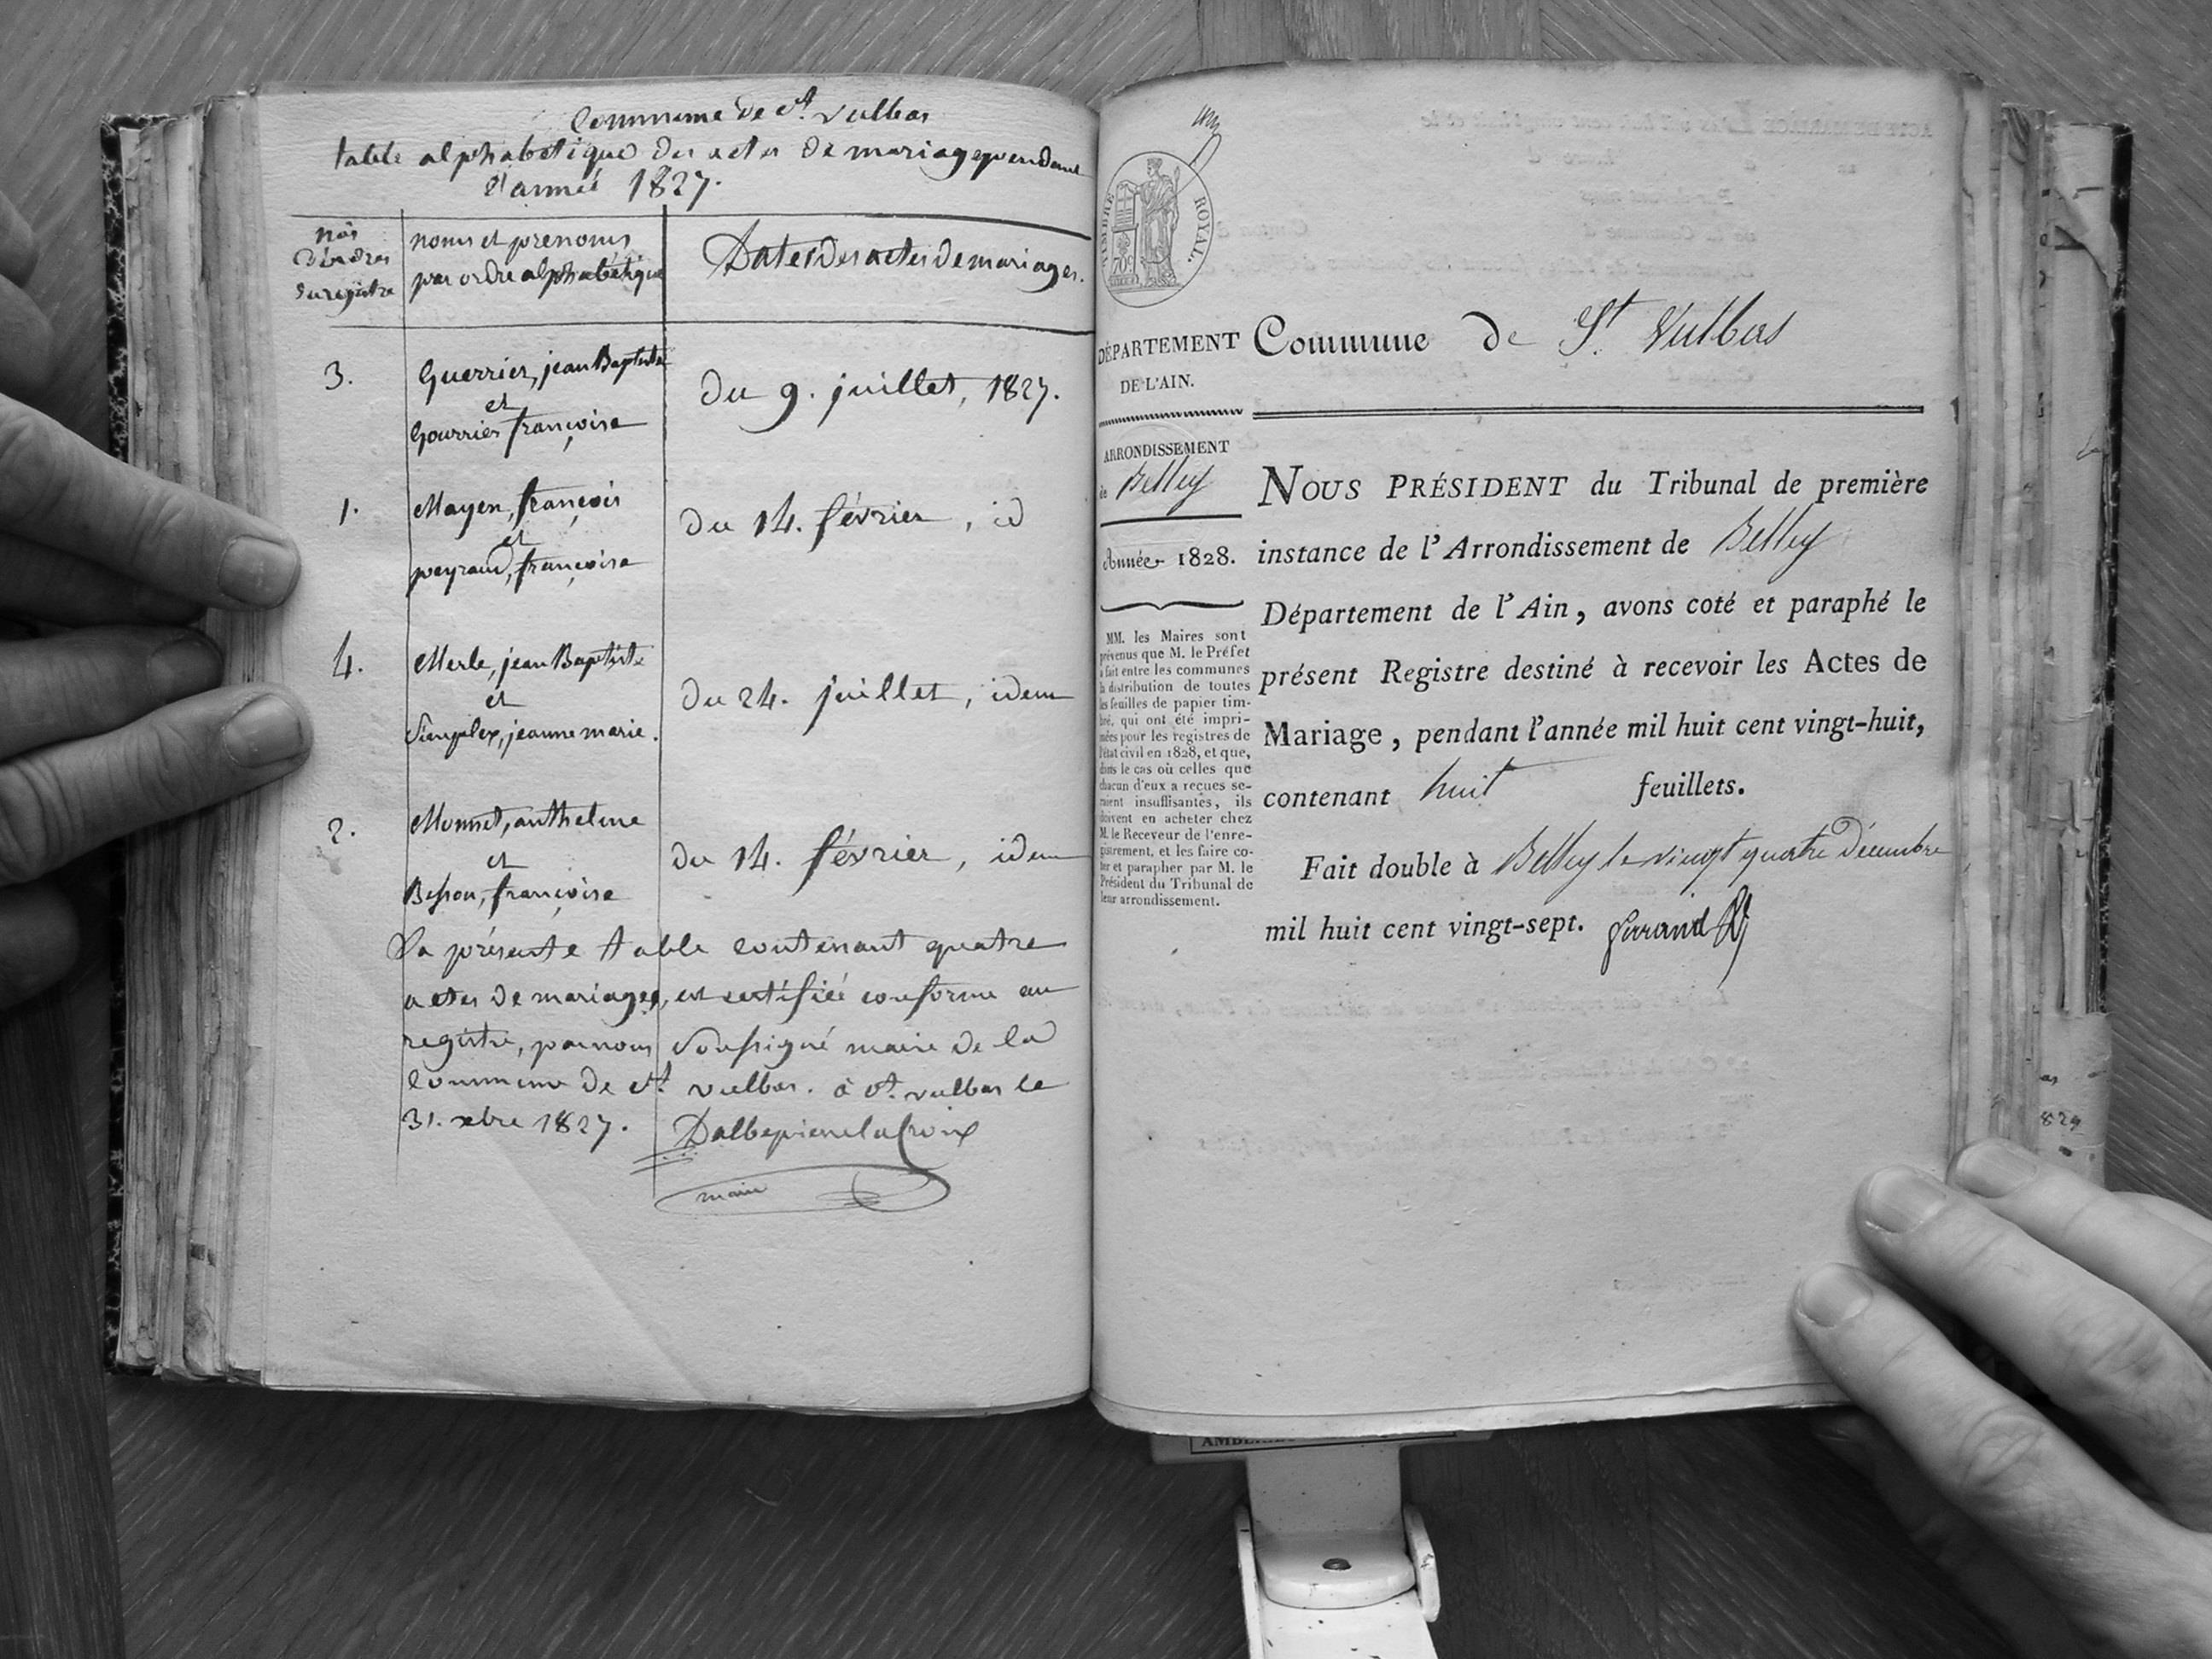 Commune de St. Vulbas
table alphabétique des actes de mariage pendant
l'année 1827.
nos
d'ordres
du régistre
noms et prenoms
par ordre alphabétique
Dates des actes de mariages.
3.
Guerrier, jean Baptiste
et
Gourrier françoise
Du 9. juillet, 1827.
1.
Mayen, françois
et
peyraud, françoise
Du 14. février, id
4.
Merle, jean Baptiste
et
Simplex, jeanne marie.
Du 24. juillet, idem
2.
Monnet, anthelme
et
Besson, françoise
Du 14. février, idem
La présente table contenant quatre
actes de mariages, est certifiée conforme au
registre, par nous soussigné maire de la
Commune de St. vulbas. à St. vulbas le
31. xbre 1827.
maire
TIMBRE ROYAL.
70c
DÉPARTEMENT
DE L'AIN.
ARRONDISSEMENT
de Belley
Année 1828.
MM. les Maires sont
prévenus que M. le Préfet
a fait entre les communes
la distribution de toutes
les feuilles de papier tim-
bré, qui ont été impri-
mées pour les registres de
l'état civil en 1828, et que,
dans le cas où celles que
chacun d'eux a reçues se-
raient insuffisantes, ils
doivent en acheter chez
M. le Receveur de l'enre-
gistrement, et les faire co-
ter et parapher par M. le
Président du Tribunal de
leur arrondissement.
Commune de St. Vulbas
NOUS PRÉSIDENT du Tribunal de première
instance de l'Arrondissement de Belley
Département de l'Ain, avons coté et paraphé le
présent Registre destiné à recevoir les Actes de
Mariage, pendant l'année mil huit cent vingt-huit,
contenant huit feuillets.
Fait double à Belley le vingt quatre Décembre
mil huit cent vingt-sept.